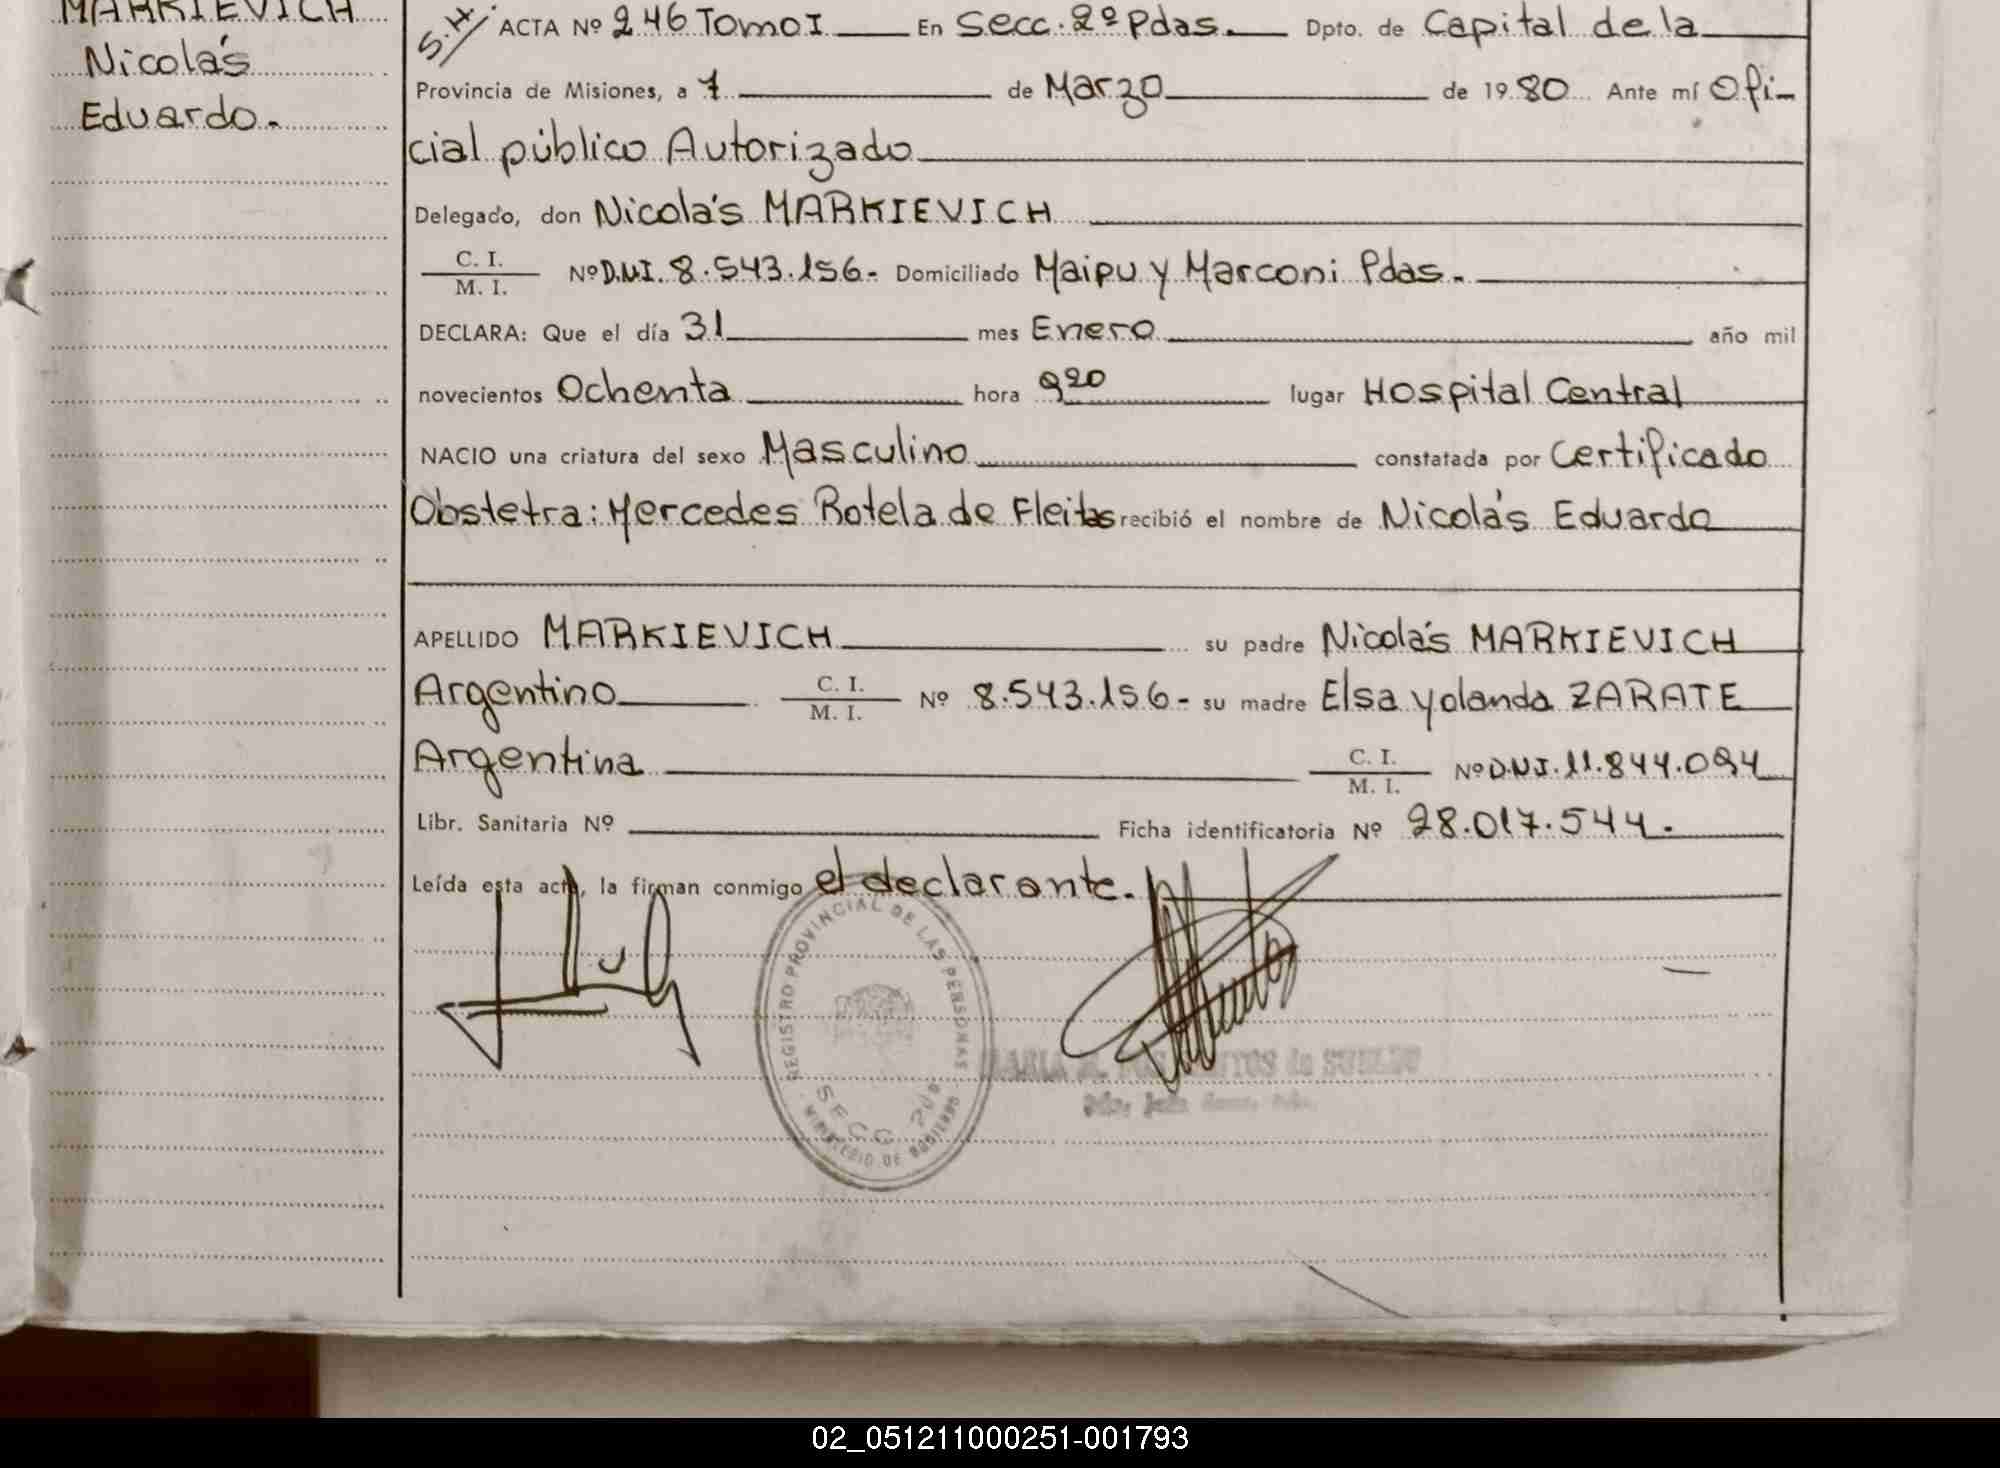 MARKIEVICH
Nicolás
Eduardo.-
S.H. ACTA Nº 246 Tomo I En Secc. 2º Pdas. Dpto. de Capital de la
Provincia de Misiones, a 7 de Marzo de 1980 Ante mí Ofi-
cial público Autorizado
Delegado, don Nicolás MARKIEVICH
C. I.
M. I. Nº D.N.I. 8.543.156.- Domiciliado Maipu y Marconi Pdas.-
DECLARA: Que el día 31 mes Enero año mil
novecientos Ochenta hora 9 20 lugar Hospital Central
NACIO una criatura del sexo Masculino constatada por Certificado
Obstetra: Mercedes Rotela de Fleitas recibió el nombre de Nicolás Eduardo
APELLIDO MARKIEVICH su padre Nicolás MARKIEVICH
Argentino C. I. M. I. Nº 8.543.156- su madre Elsa Yolanda ZARATE
Argentina C. I. M. I. Nº D.N.I. 11.844.094
Libr. Sanitaria Nº Ficha identificatoria Nº 28.017.544.
Leída esta acta, la firman conmigo el declarante.
REGISTRO PROVINCIAL DE LAS PERSONAS
SECC. 2
MINISTERIO DE GOBIERNO
02_051211000251-001793